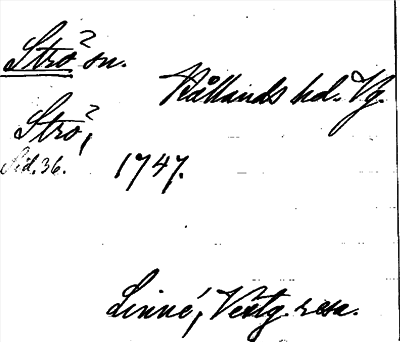 Strö sn.
Kållands hd. Vg.
Strö,
Sid. 36. 1747.
Linné, Västg. resa.